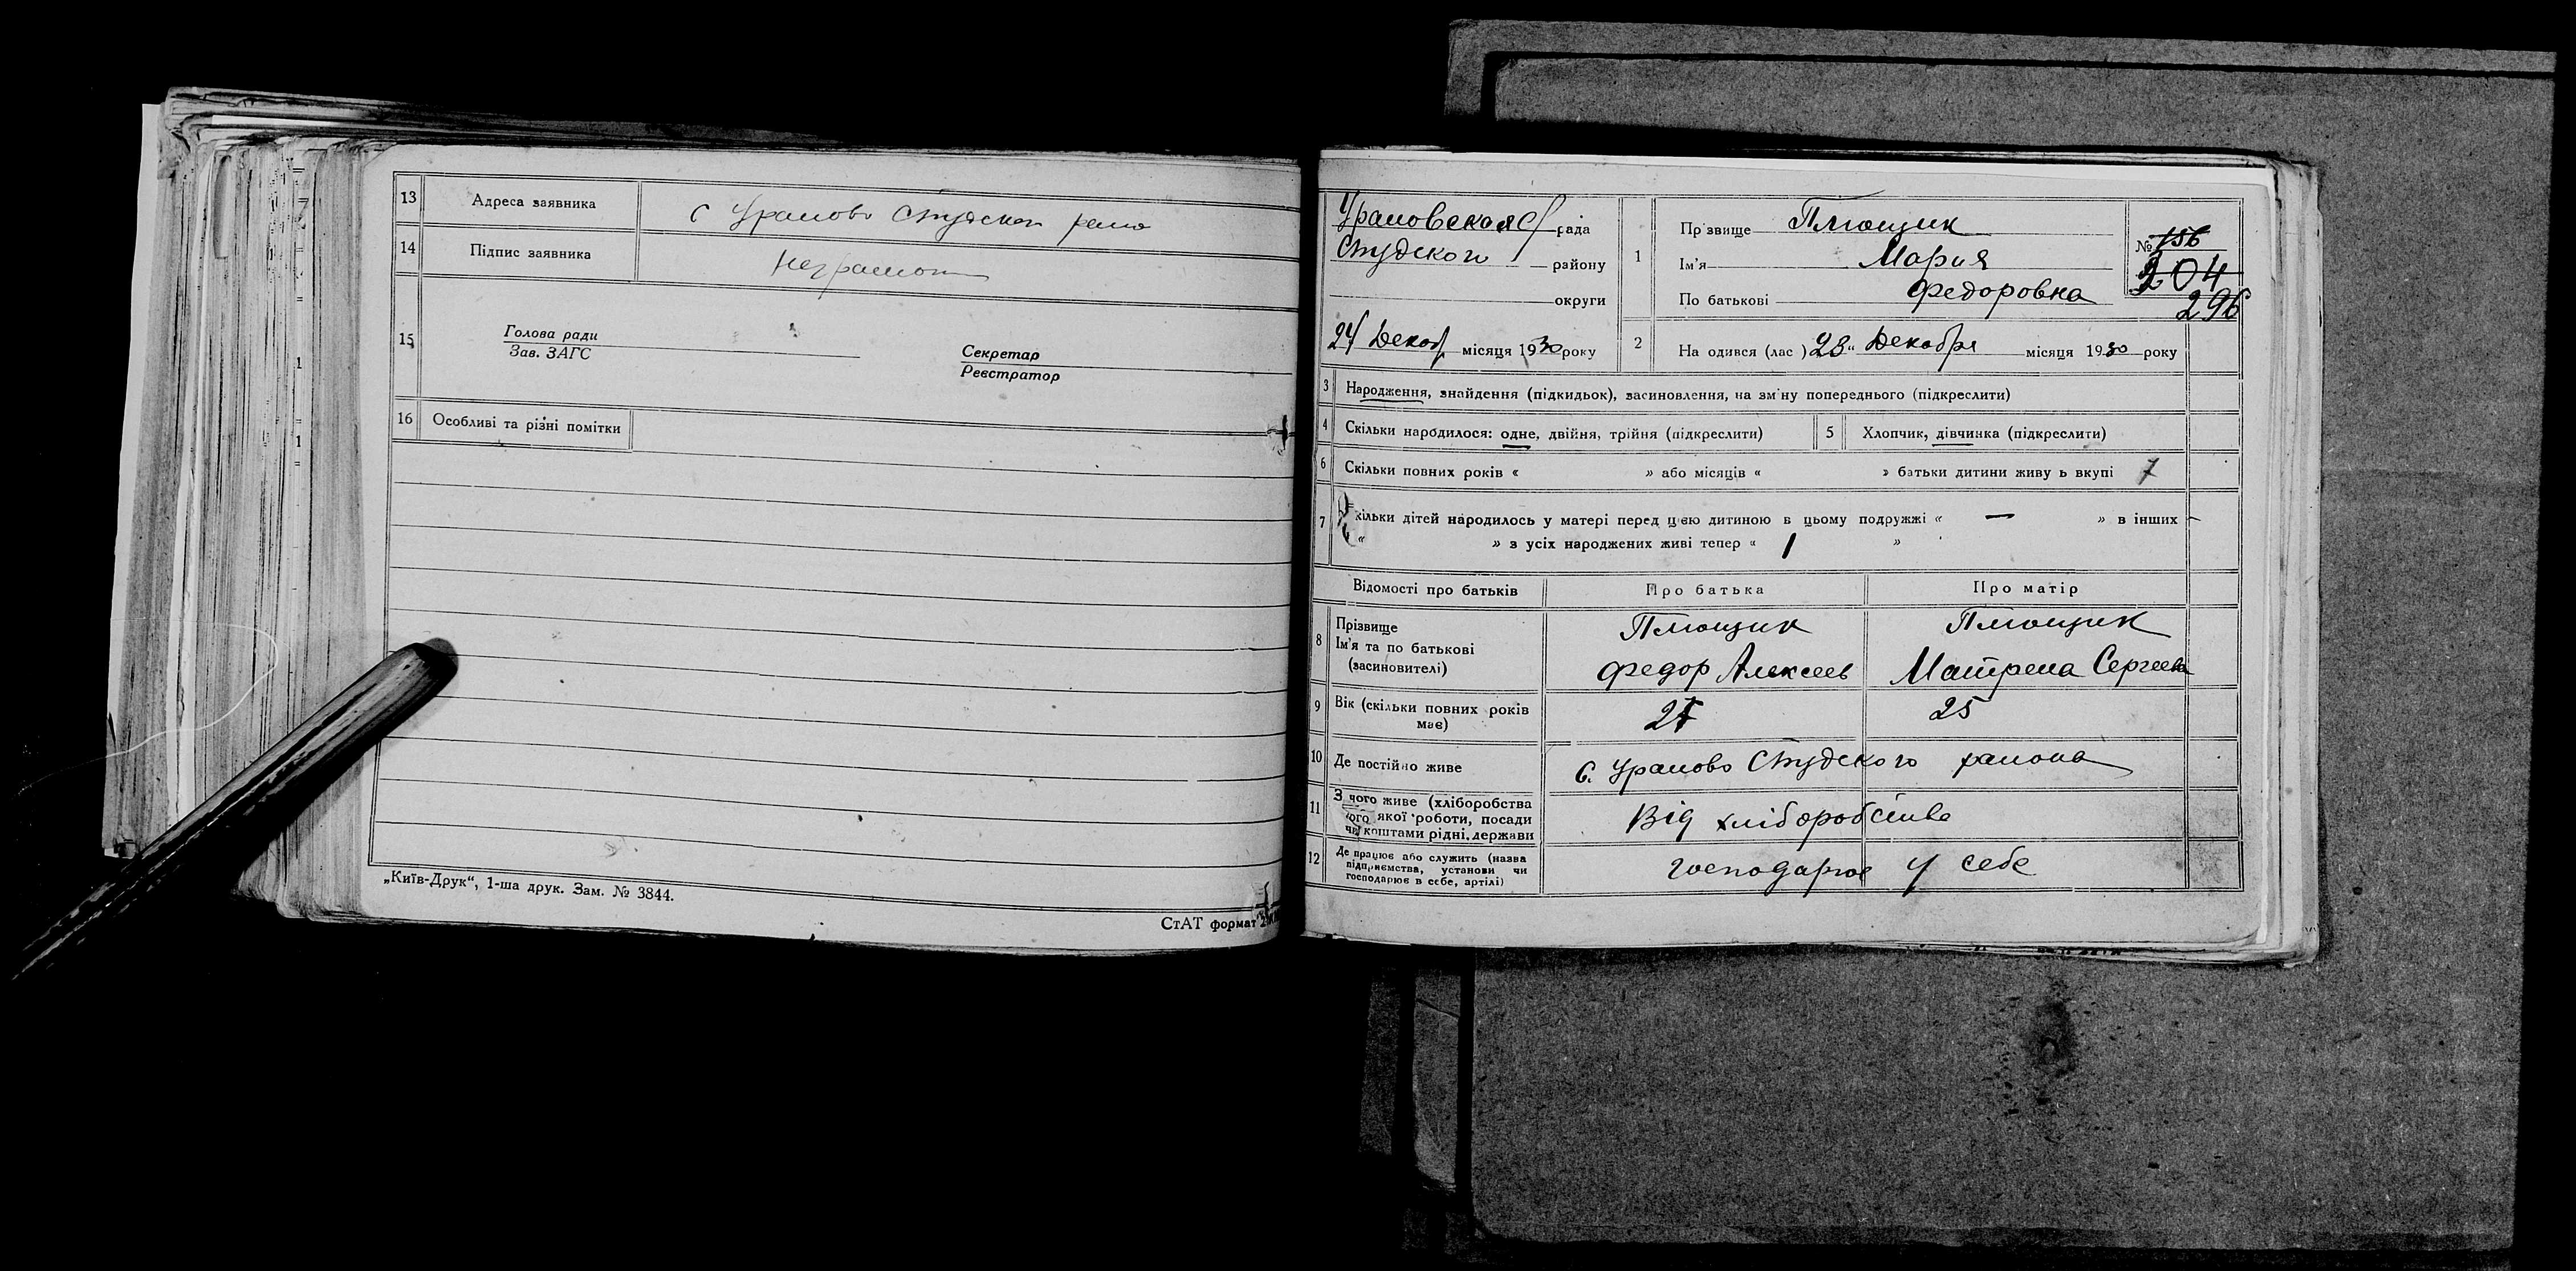 13 Адреса заявника с Урамово Студскон рано
14 Підпис заявника неграмотн
15 Голова ради
Зав. ЗАГС
Секретар
Реєстратор
16 Особливі та різні помітки
„Київ-Друк“, 1-ша друк. Зам. № 3844.
СтАТ формат
рада
Студского району
округи
24 Декаб місяця 1930 року
1 Прізвище Плющик
Ім'я Мария
По батькові Федоровна
№ 156
204
296
2 На одився (лас ) 23 " Декабря місяця 1930 року
3 Народження, знайдення (підкидьок), засиновлення, на зм ну попереднього (підкреслити)
4 Скільки народилося: одне, двійня, трійня (підкреслити) 5 Хлопчик, дівчинка (підкреслити)
6 Скільки повних років « » або місяців « » батьки дитини живу ь вкупі 7
7 кільки дітей народилось у матері перед цією дитиною в цьому подружжі « — » в інших –
« » з усіх народжених живі тепер « 1 »
Відомості про батьків Про батька Про матір
8 Прізвище Плющик Плющик
Ім'я та по батькові
(засиновителі) Федор Алексеев Матрена Сергеевна
9 Вік (скільки повних років має) 27 25
10 Де постійно живе с. Урамово Студского района
11 З чого живе (хліборобства
ого якої роботи, посади
чи коштами рідні, держави Від хліборобства
12 Де працює або служить (назва
підприємства, установи чи
господарює в себе, артілі) господарює у себе